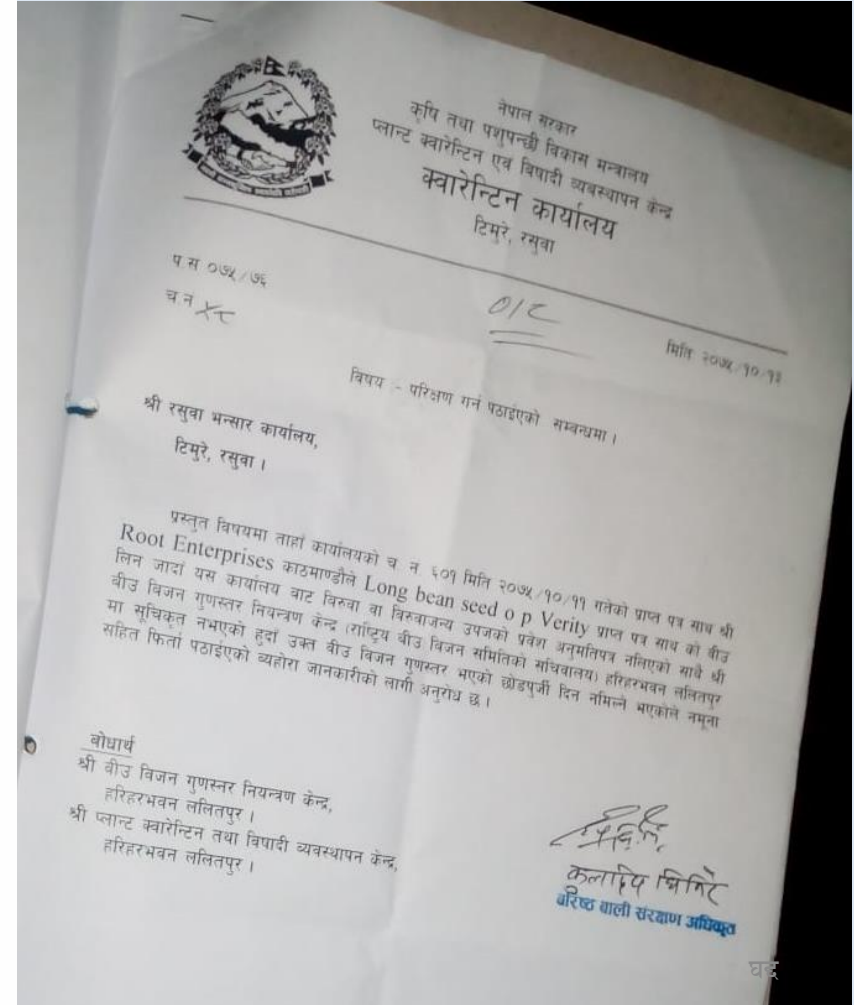 नेपाल सरकार
कृषि तथा पशुपन्छी विकास मन्त्रालय
प्लान्ट क्वारेन्टिन एवं बिषादी व्यवस्थापन केन्द्र
क्वारेन्टिन कार्यालय
टिमुरे, रसुवा
प.स ०७५/७६
च.न
मिति २०७५/१०/१३
विषय :- परिक्षण गर्न पठाईएको सम्बन्धमा ।
श्री रसुवा भन्सार कार्यालय,
टिमुरे, रसुवा ।
प्रस्तुत विषयमा ताहां कार्यालयको च न ६०१ मिति २०७५/१०/११ गतेको प्राप्त पत्र साथ श्री
Root Enterprises काठमाण्डौले Long bean seed o p Verity प्राप्त पत्र साथ को बीउ
लिन जादां यस कार्यालय बाट विरुवा वा विरुवाजन्य उपजको प्रवेश अनुमतिपत्र नलिएको साथै श्री
बीउ विजन गुणस्तर नियन्त्रण केन्द्र (राष्ट्रिय बीउ विजन समितिको सचिवालय) हरिहरभवन ललितपुर
मा सूचिकृत नभएको हुदां उक्त बीउ विजन गुणस्तर भएको छोडपुर्जी दिन नमिल्ने भएकोले नमूना
सहित फिर्ता पठाईएको व्यहोरा जानकारीको लागी अनुरोध छ ।
बोधार्थ
श्री बीउ विजन गुणस्तर नियन्त्रण केन्द्र,
हरिहरभवन ललितपुर ।
श्री प्लान्ट क्वारेन्टिन तथा विषादी व्यवस्थापन केन्द्र,
हरिहरभवन ललितपुर ।
बरिष्ठ बाली संरक्षण अधिकृत